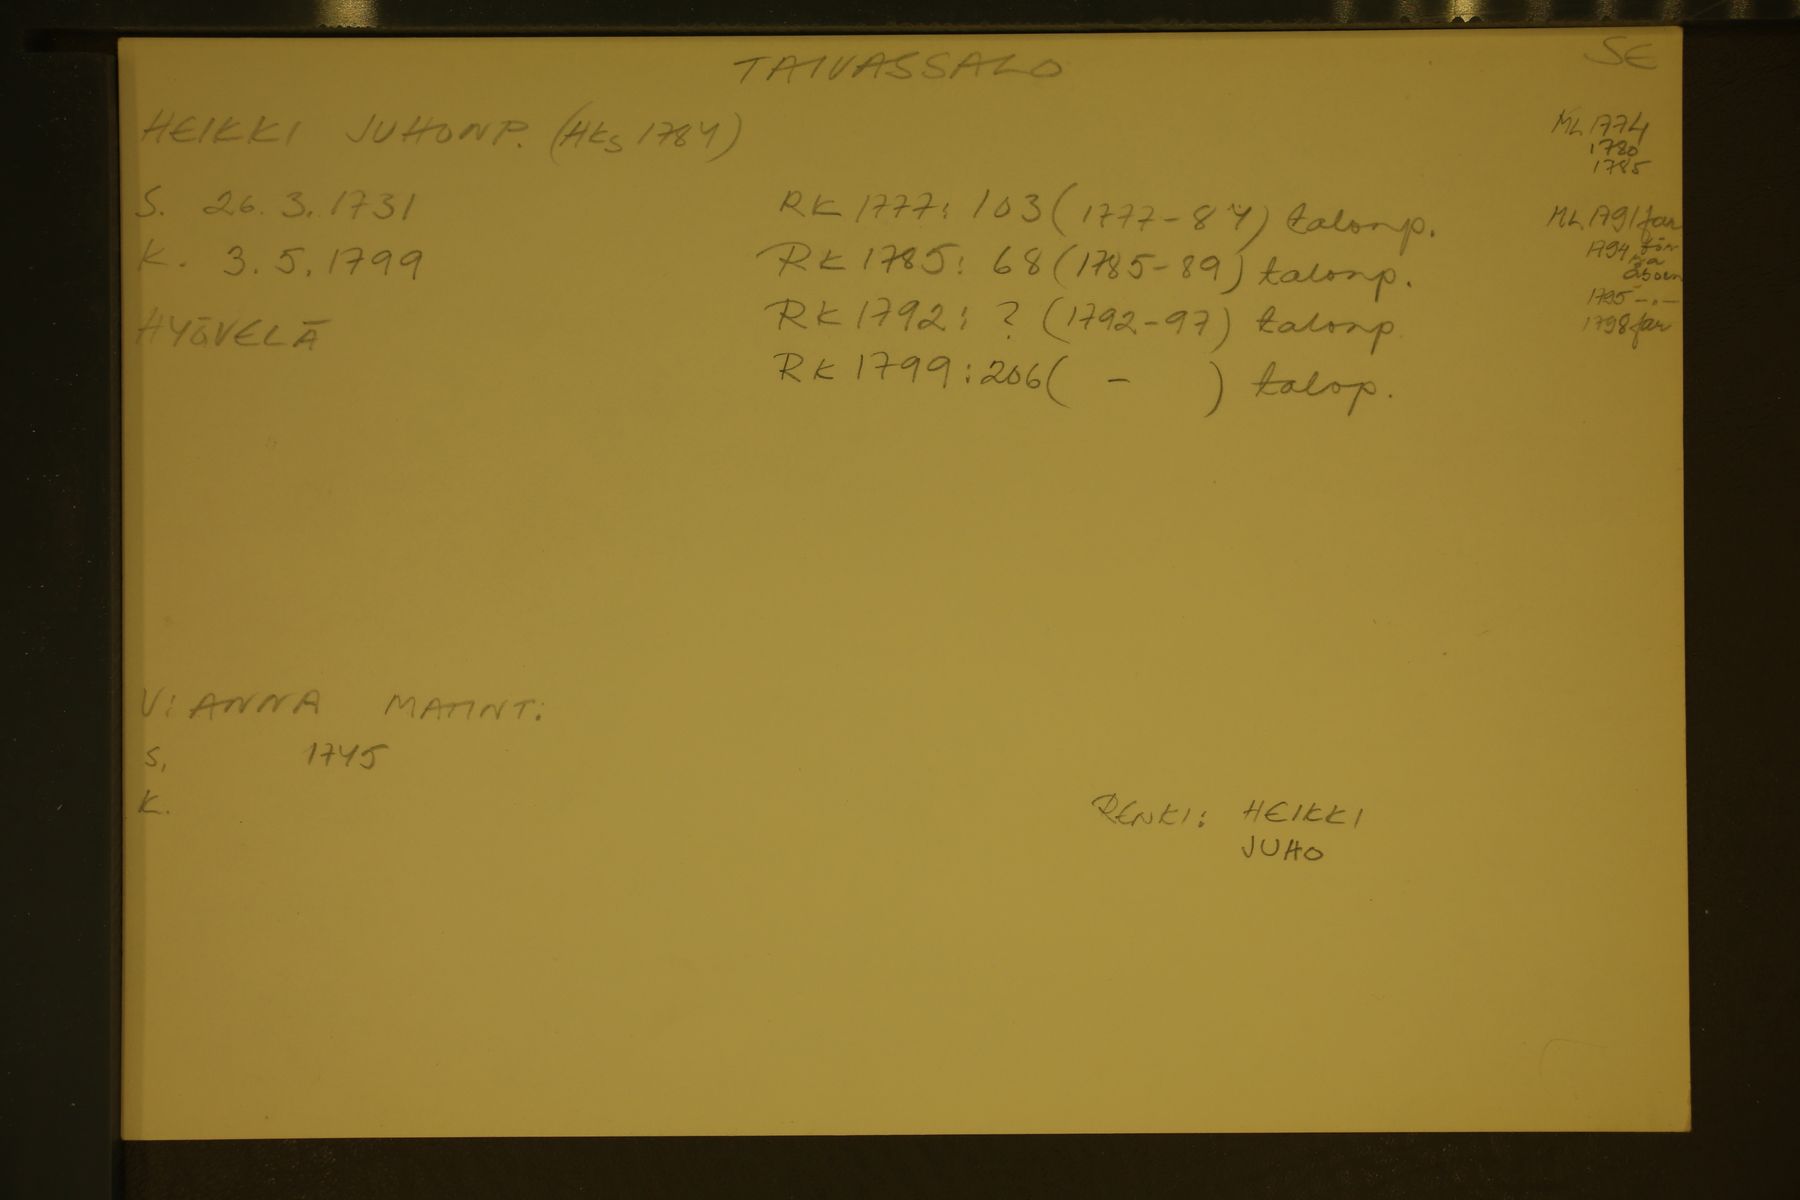 TAIVASSALO
SE
HEIKKI JUHONP. (HKS 1784)
S. 26. 3. 1731
K. 3. 5. 1799
HYÖVELÄ
RK 1777: 103 (1777-84) talonp.
RK 1785: 68 (1785-89) talonp.
RK 1792: ? (1792-97) talonp
RK 1799: 206 ( - ) talop.
ML 1774
1780
1785
ML 1791 far
1794
1795 -.-
1798 far
V: ANNA MATINT:
S, 1745
K.
RENKI: HEIKKI
JUHO